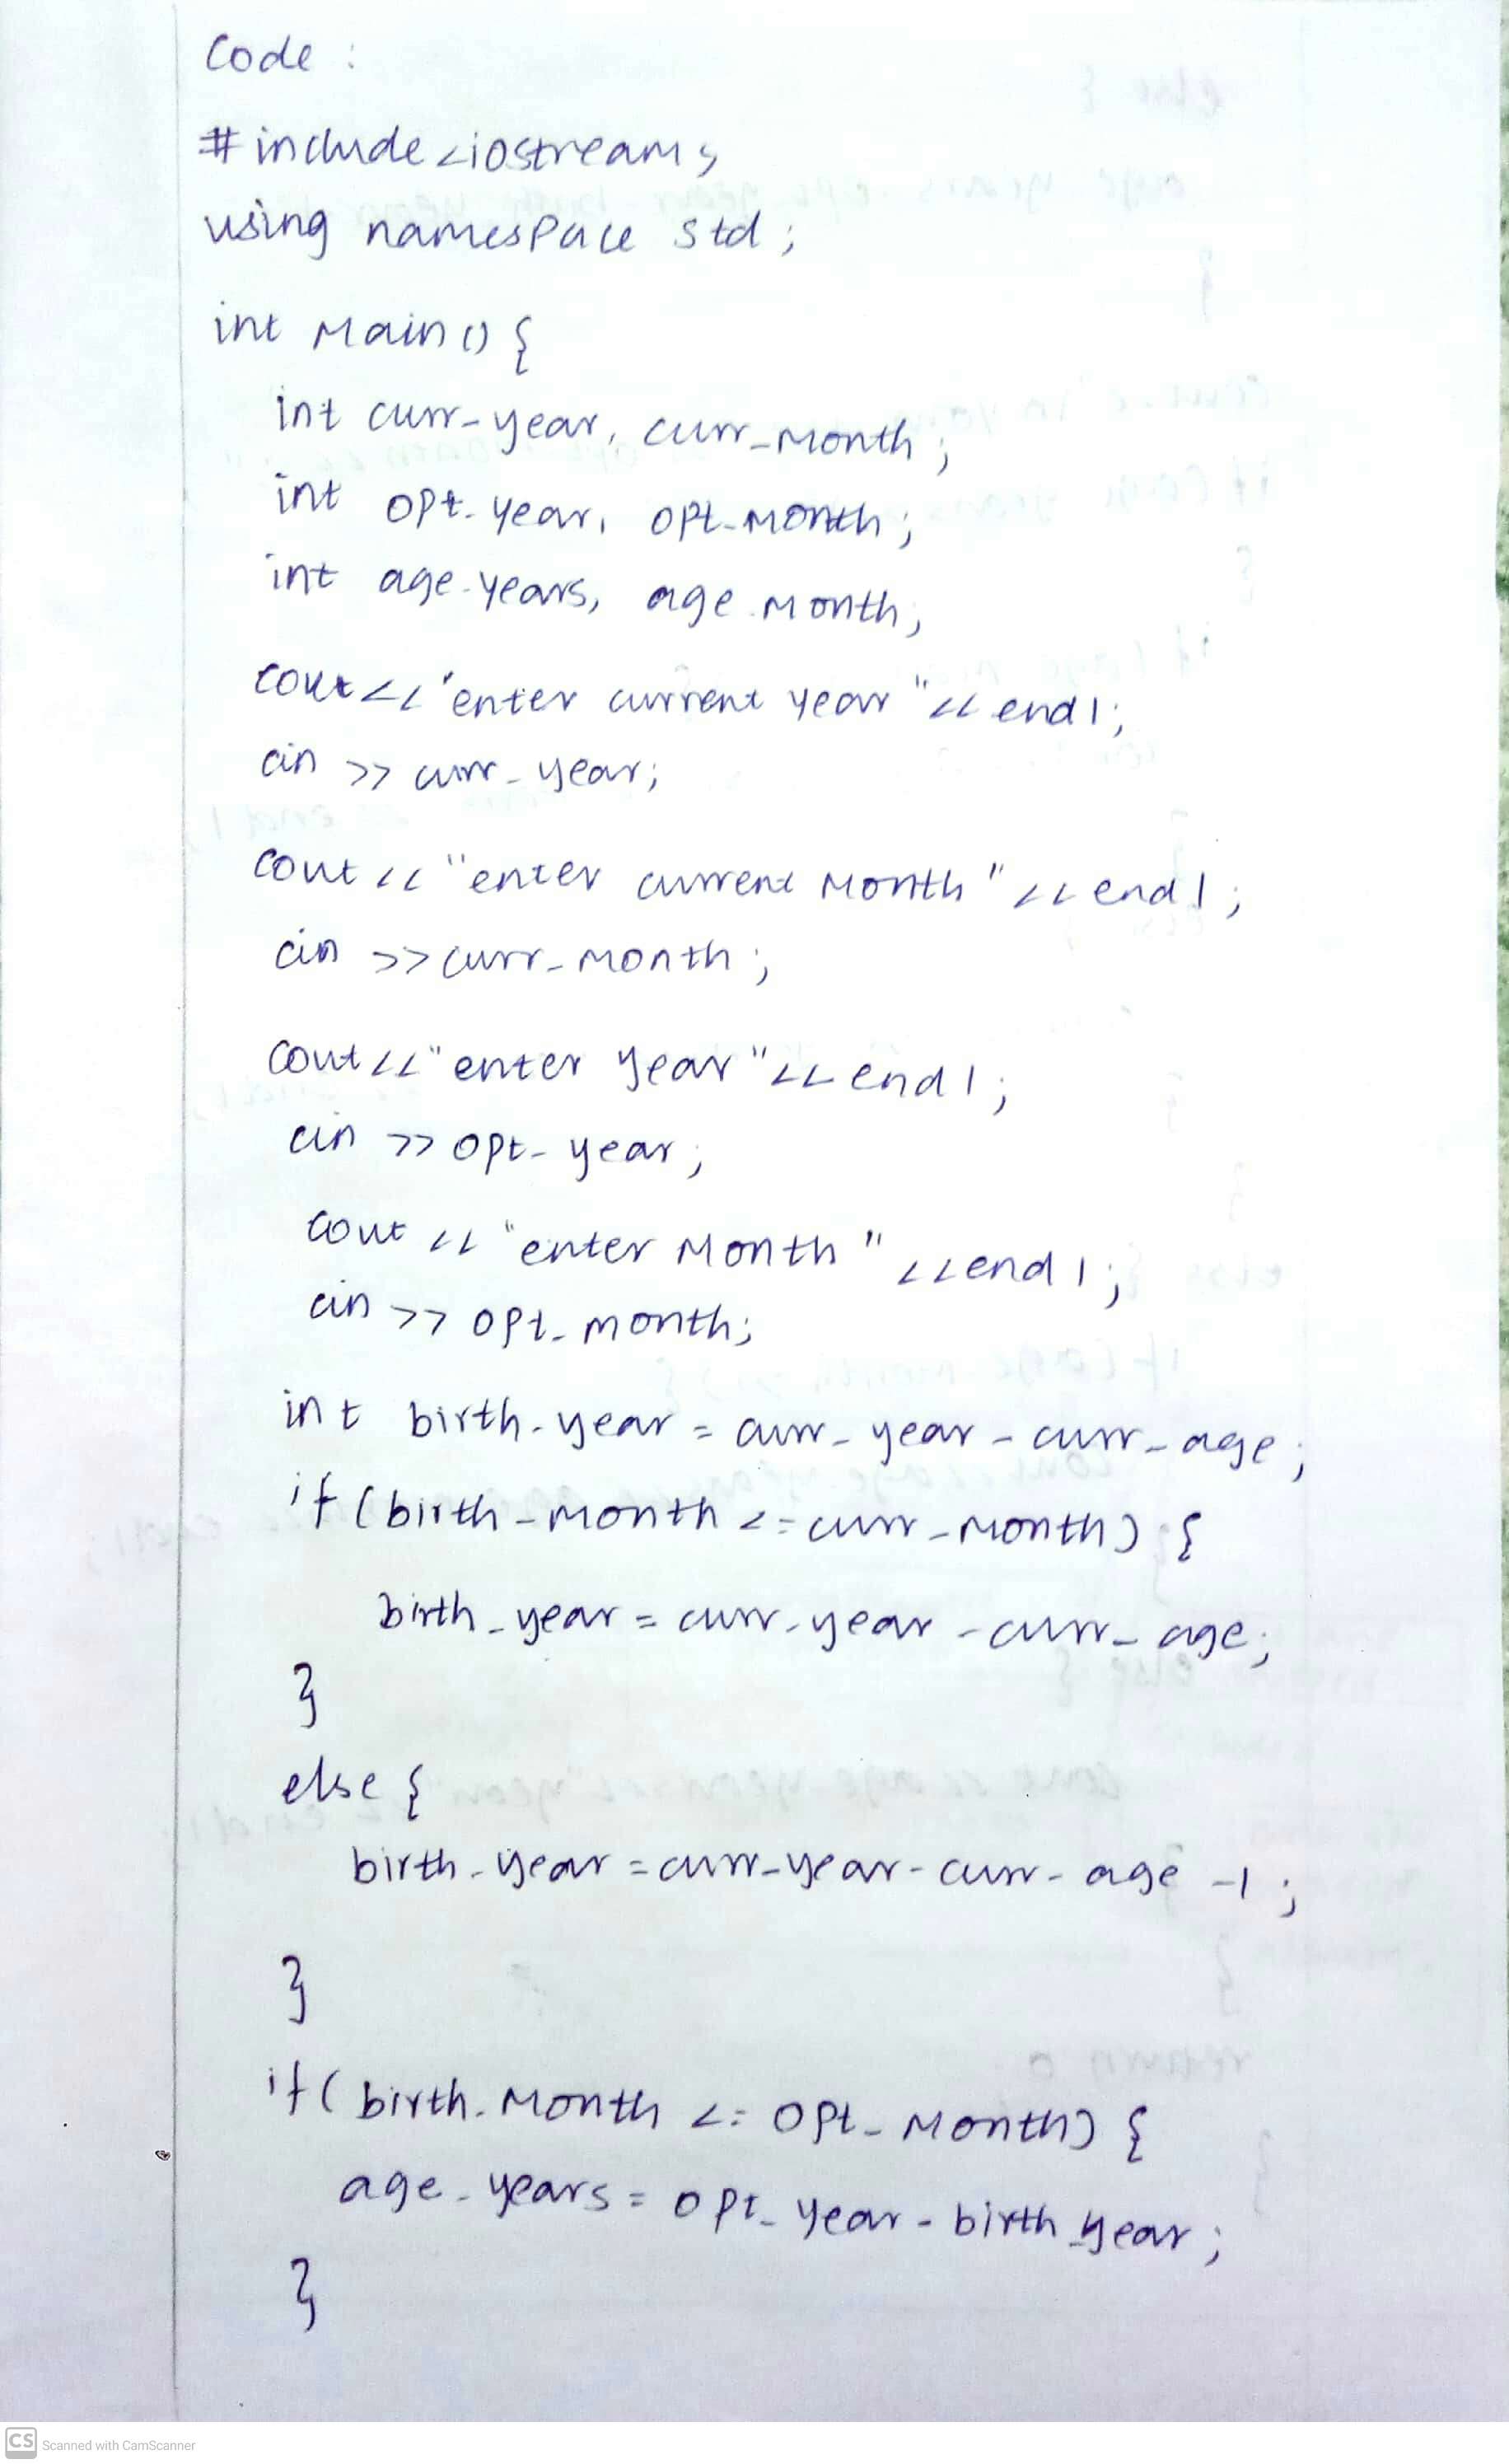 Code :
#include <iostream>
using namespace std ;
int Main() {
int curr_year, curr_Month ;
int opt_year, opt_Month ;
int age_years, age_Month ;
cout << "enter current year" << endl ;
cin >> curr_year ;
cout << "enter current Month" << endl ;
cin >> curr_Month ;
cout << "enter year" << endl ;
cin >> opt_year ;
cout << "enter Month" << endl ;
cin >> opt_month ;
int birth_year = curr_year - curr_age ;
if (birth_Month <= curr_Month) {
birth_year = curr_year - curr_age ;
}
else {
birth_year = curr_year - curr_age -1 ;
}
if (birth_Month <= opt_Month) {
age_years = opt_year - birth_year ;
}
CS Scanned with CamScanner